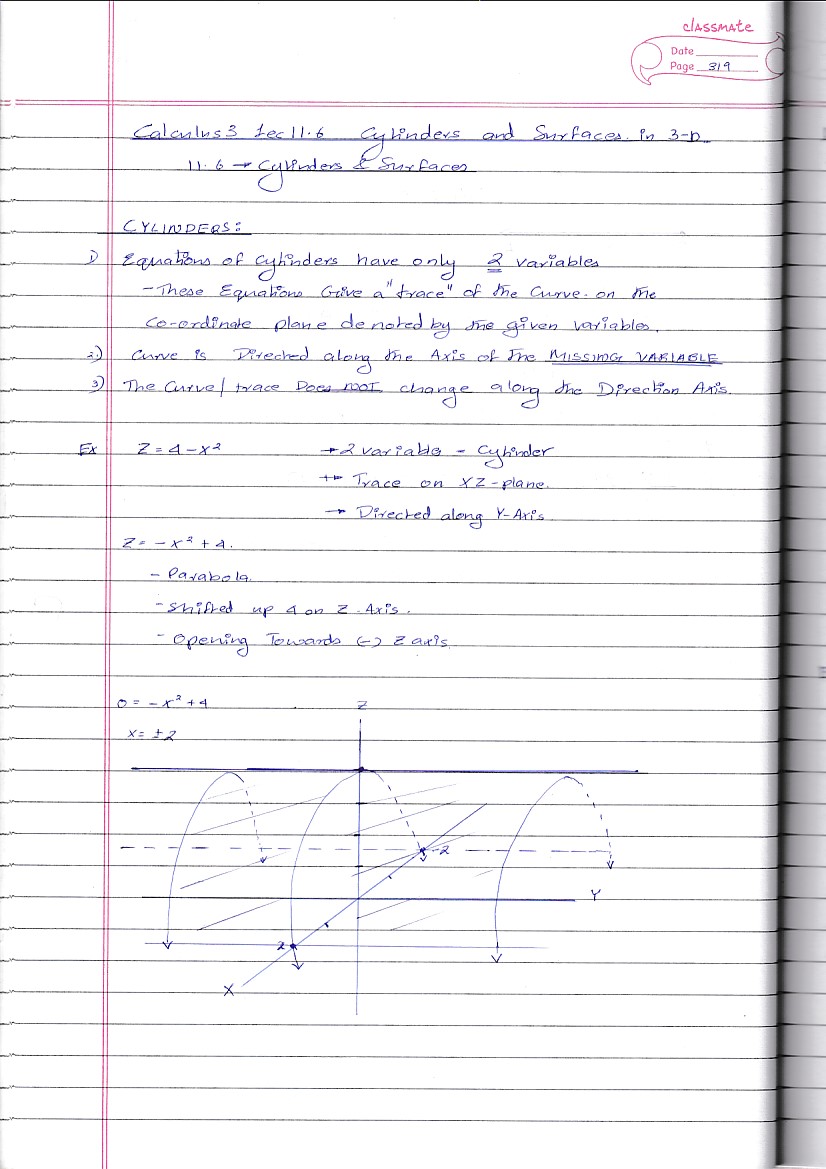 classmate
Date
Page 319
Calculus 3 Lec 11.6 Cylinders and Surfaces in 3-D
11.6 → Cylinders & Surfaces
CYLINDERS:
1) Equations of Cylinders have only 2 variables
- These Equations Give a "trace" of the Curve on the
Co-ordinate plane denoted by the given variables.
2) Curve is Directed along the Axis of the MISSING VARIABLE
3) The Curve/trace Does NOT change along the Direction Axis.
Ex Z = 4 - x² → 2 variable - Cylinder
→ Trace on XZ-plane.
→ Directed along Y-Axis
Z = -x² + 4.
- Parabola.
- Shifted up 4 on Z-Axis.
- Opening Towards (-) Z axis.
0 = -x² + 4
Z
x = ±2
-2
Y
2
X